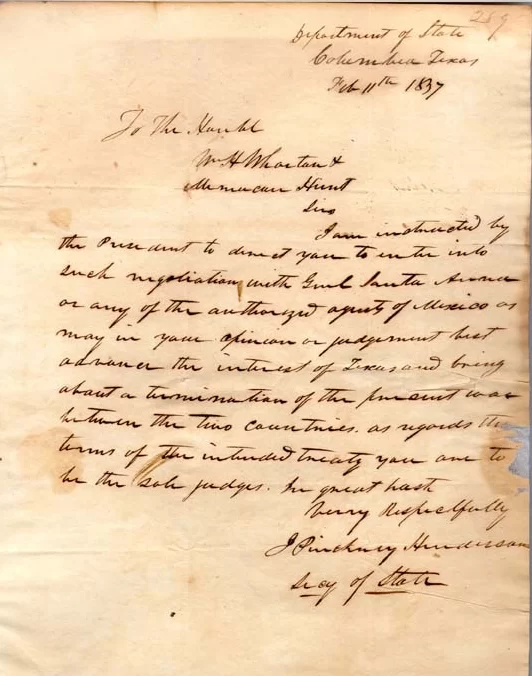 289
Department of State
Columbia Texas
Feb 11th 1837
To The Honble
Wm H Wharton &
Memucan Hunt
Sirs
I am instructed by
the President to direct you to enter into
such negotiation with Genl Santa Anna
or any of the authorized agents of Mexico as
may in your opinion or judgement best
advance the interest of Texas and bring
about a termination of the present war
between the two countries. as regards the
terms of the intended treaty you are to
be the sole judges. In great hast
Verry Respectfully
J Pinckney Henderson
Secy of State